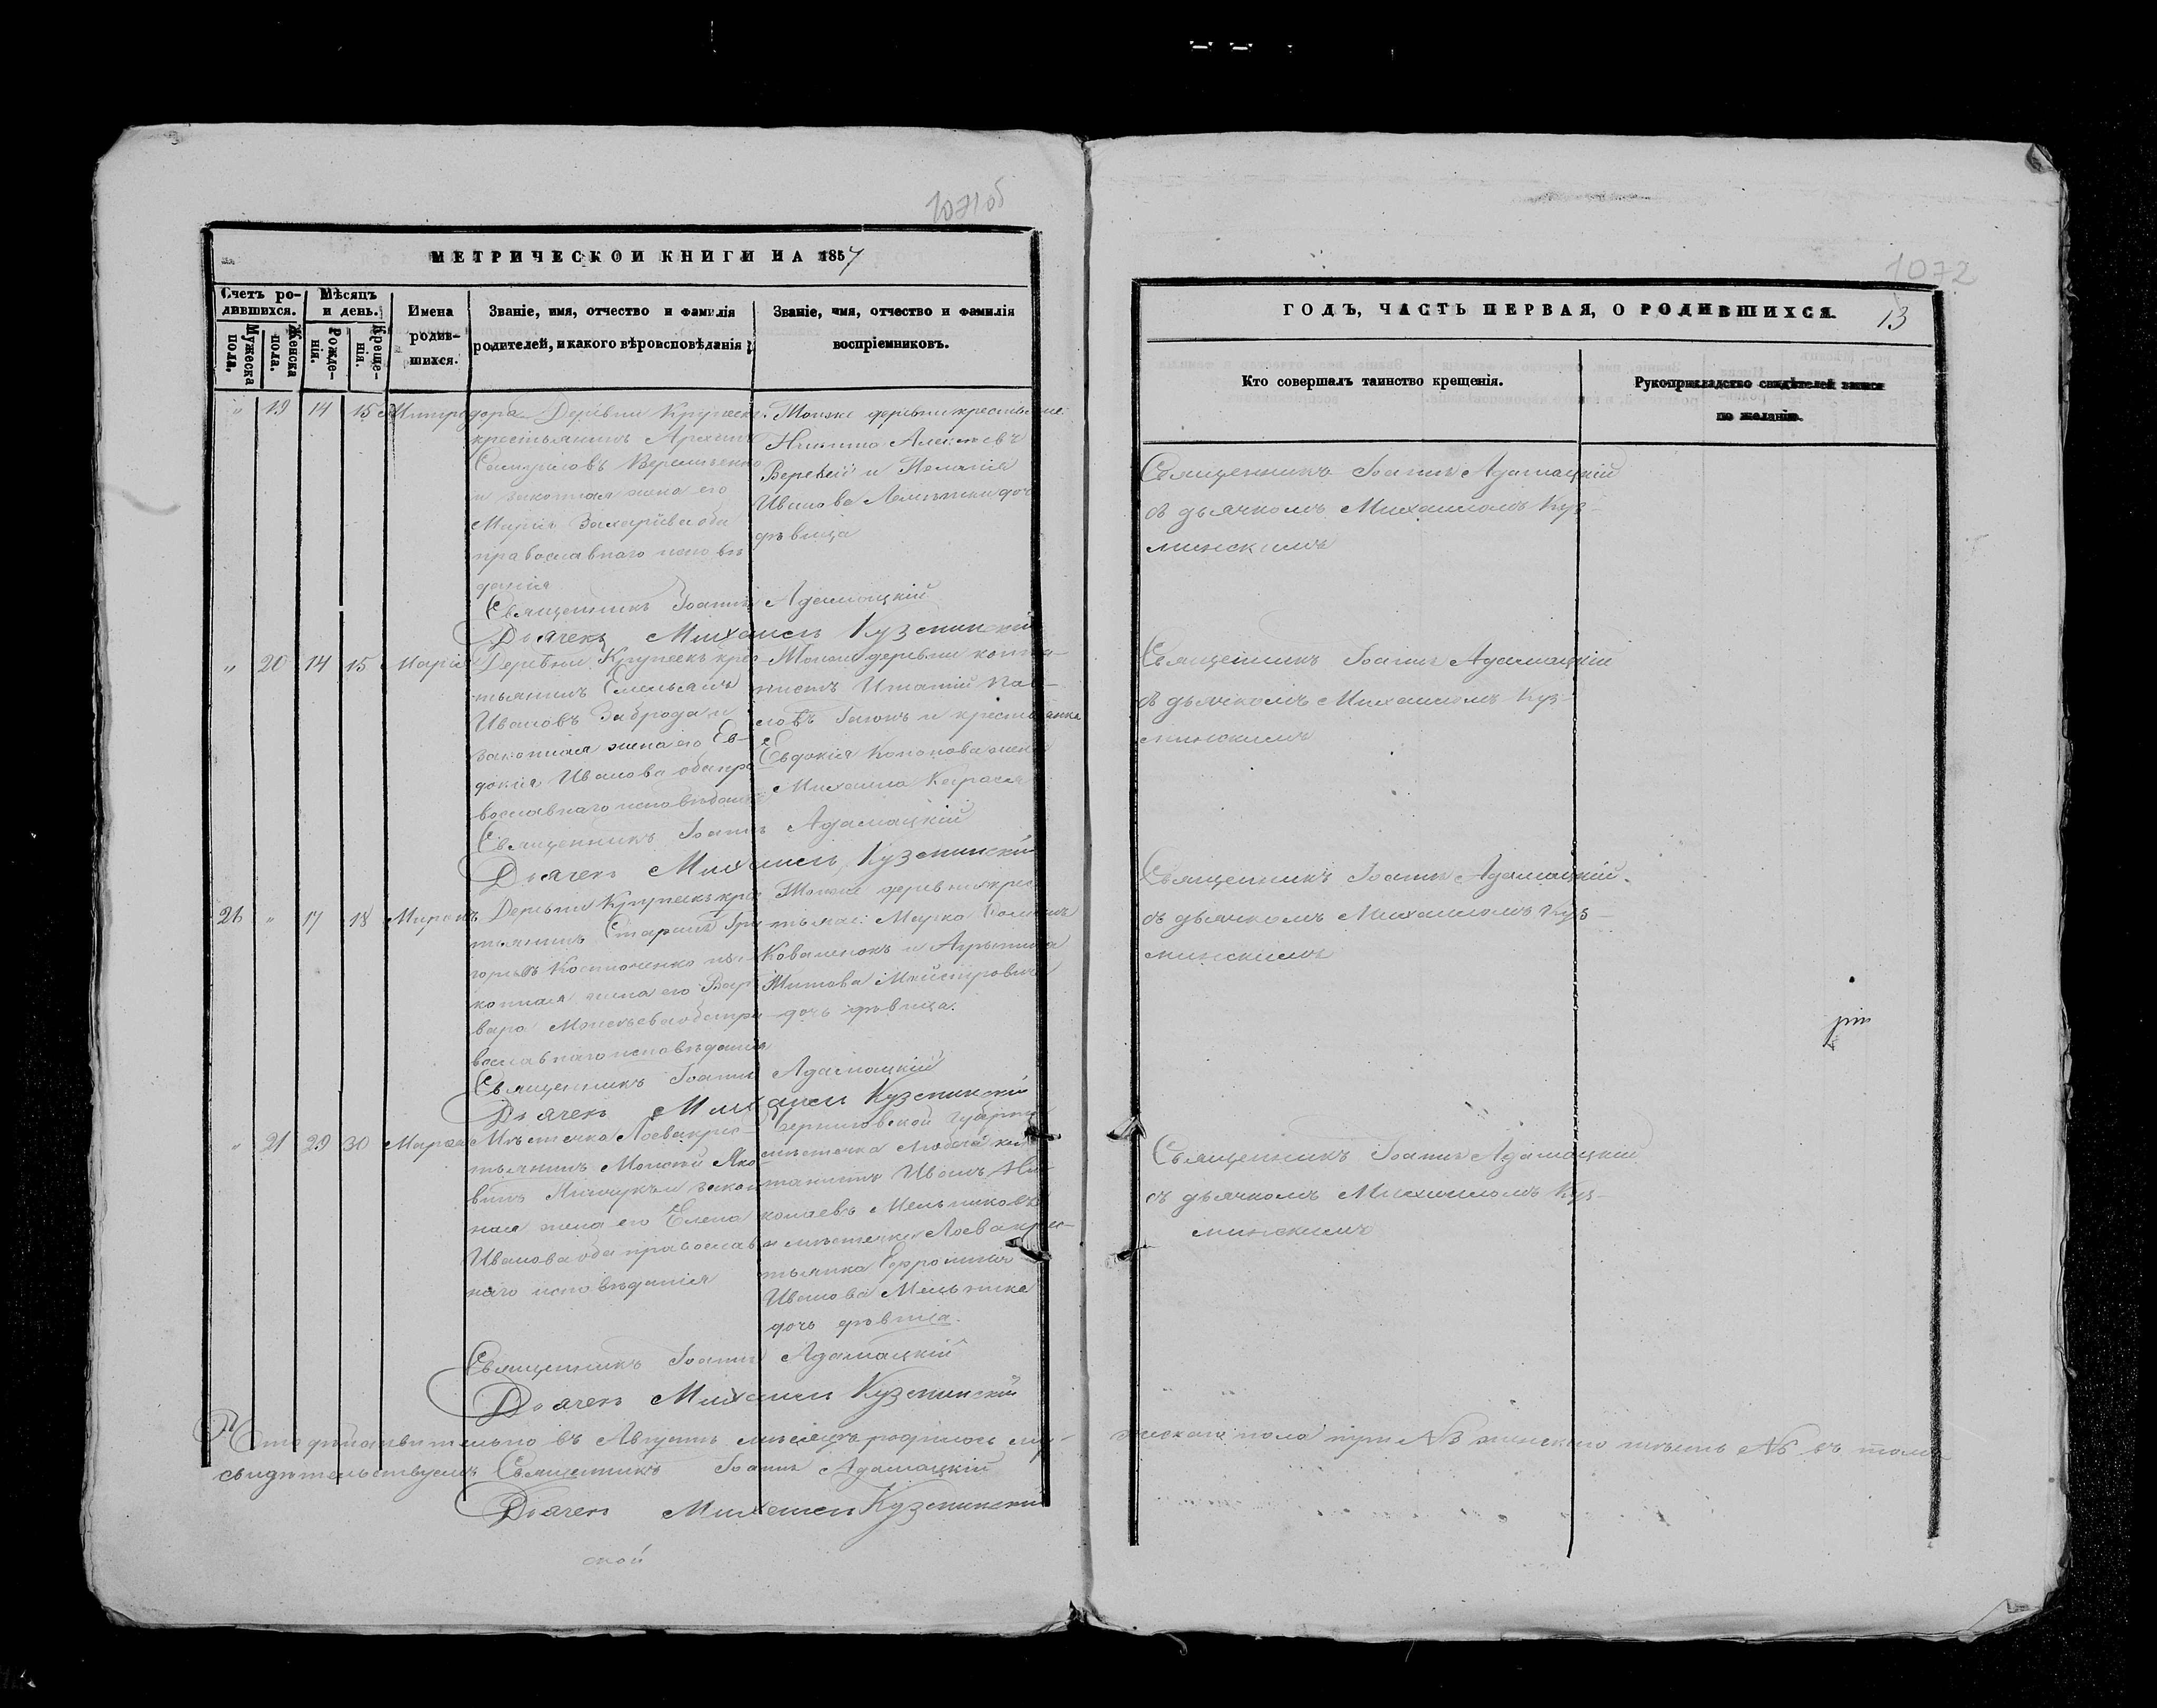 1071об
МЕТРИЧЕСКОИ КНИГИ НА 1857
Счетъ ро-
дившихся.
Мѣсяцъ
и день.
Имена
родив-
шихся.
Званіе, имя, отчество и фамилія
родителей, и какого вѣроисповѣданія
Званіе, имя, отчество и фамилія
воспріемниковъ.
Мужеска
пола.
Женска
пола.
Рожде-
нія.
Креще-
нія.
" 19 14 15 Митродора
Деревни
крестьянинъ
Самуиловъ
и законная жена его
Марія Захаріева оба
православнаго исповѣ
данія
Тойже деревни крестьяне
Никита Алексѣевъ
и Пелагія
Иванова доч
дѣвица
Священникъ Іоаннъ Адамацкій
Дьячекъ Михаилъ Кузминскій
" 20 14 15 Марія
Деревни крес
тьянинъ Емельянъ
Ивановъ Заброда и
законная жена его Ев-
докія Иванова оба пра
вославнаго исповѣданія
Тойже деревни
Игнатій Пав-
ловъ и крестьянка
Евдокія Кононова жена
Михаила Карася
Священникъ Іоаннъ Адамацкій
Дьячекъ Михаилъ Кузминскій
21 " 17 18 Миронъ
Деревни крес
тьянинъ Гри
горьевъ Костюченко и за
конная жена его Вар
вара Моисѣева оба пра
вославнаго исповѣданія
Тойже деревни крес
тьяне: Марко
Коваленокъ и
Титова
дочь дѣвица.
Священникъ Іоаннъ Адамацкій
Дьячекъ Михаилъ Кузминскій
" 21 29 30 Марѳа
Мѣстечка Лоева крес-
тьянинъ Моисей Яко
вивъ и закон
ная жена его Елена
Иванова оба православ
наго исповѣданія
Черниговской Губерніи
мѣстечка Любеча
Иванъ Ни
колаевъ Мельниковъ
и мѣстечка Лоева крес-
тьянка Ефросинія
Иванова Мельника
дочь дѣвица.
Священникъ Іоаннъ Адамацкій
Дьячекъ Михаилъ Кузминскій
Что дѣйствительно въ Августѣ мѣсяцѣ родилось му-
свидѣтельствуемъ Священникъ Іоаннъ Адамацкій
Дьячекъ Михаилъ Кузминскій
ской
1072
ГОДЪ, ЧАСТЬ ПЕРВАЯ, О РОДИВШИХСЯ.
13
Кто совершалъ таинство крещенія.
Рукоприкладство свидѣтелей записи
по желанію.
Священникъ Іоаннъ Адамацкій
съ дьячкомъ Михаиломъ Куз-
минскимъ
Священникъ Іоаннъ Адамацкій
съ дьячкомъ Михаиломъ Куз-
минскимъ
Священникъ Іоаннъ Адамацкій
съ дьячкомъ Михаиломъ Куз-
минскимъ
Священникъ Іоаннъ Адамацкій
съ дьячкомъ Михаиломъ Куз-
минскимъ
жескаго пола три №3 женскаго въ томъ